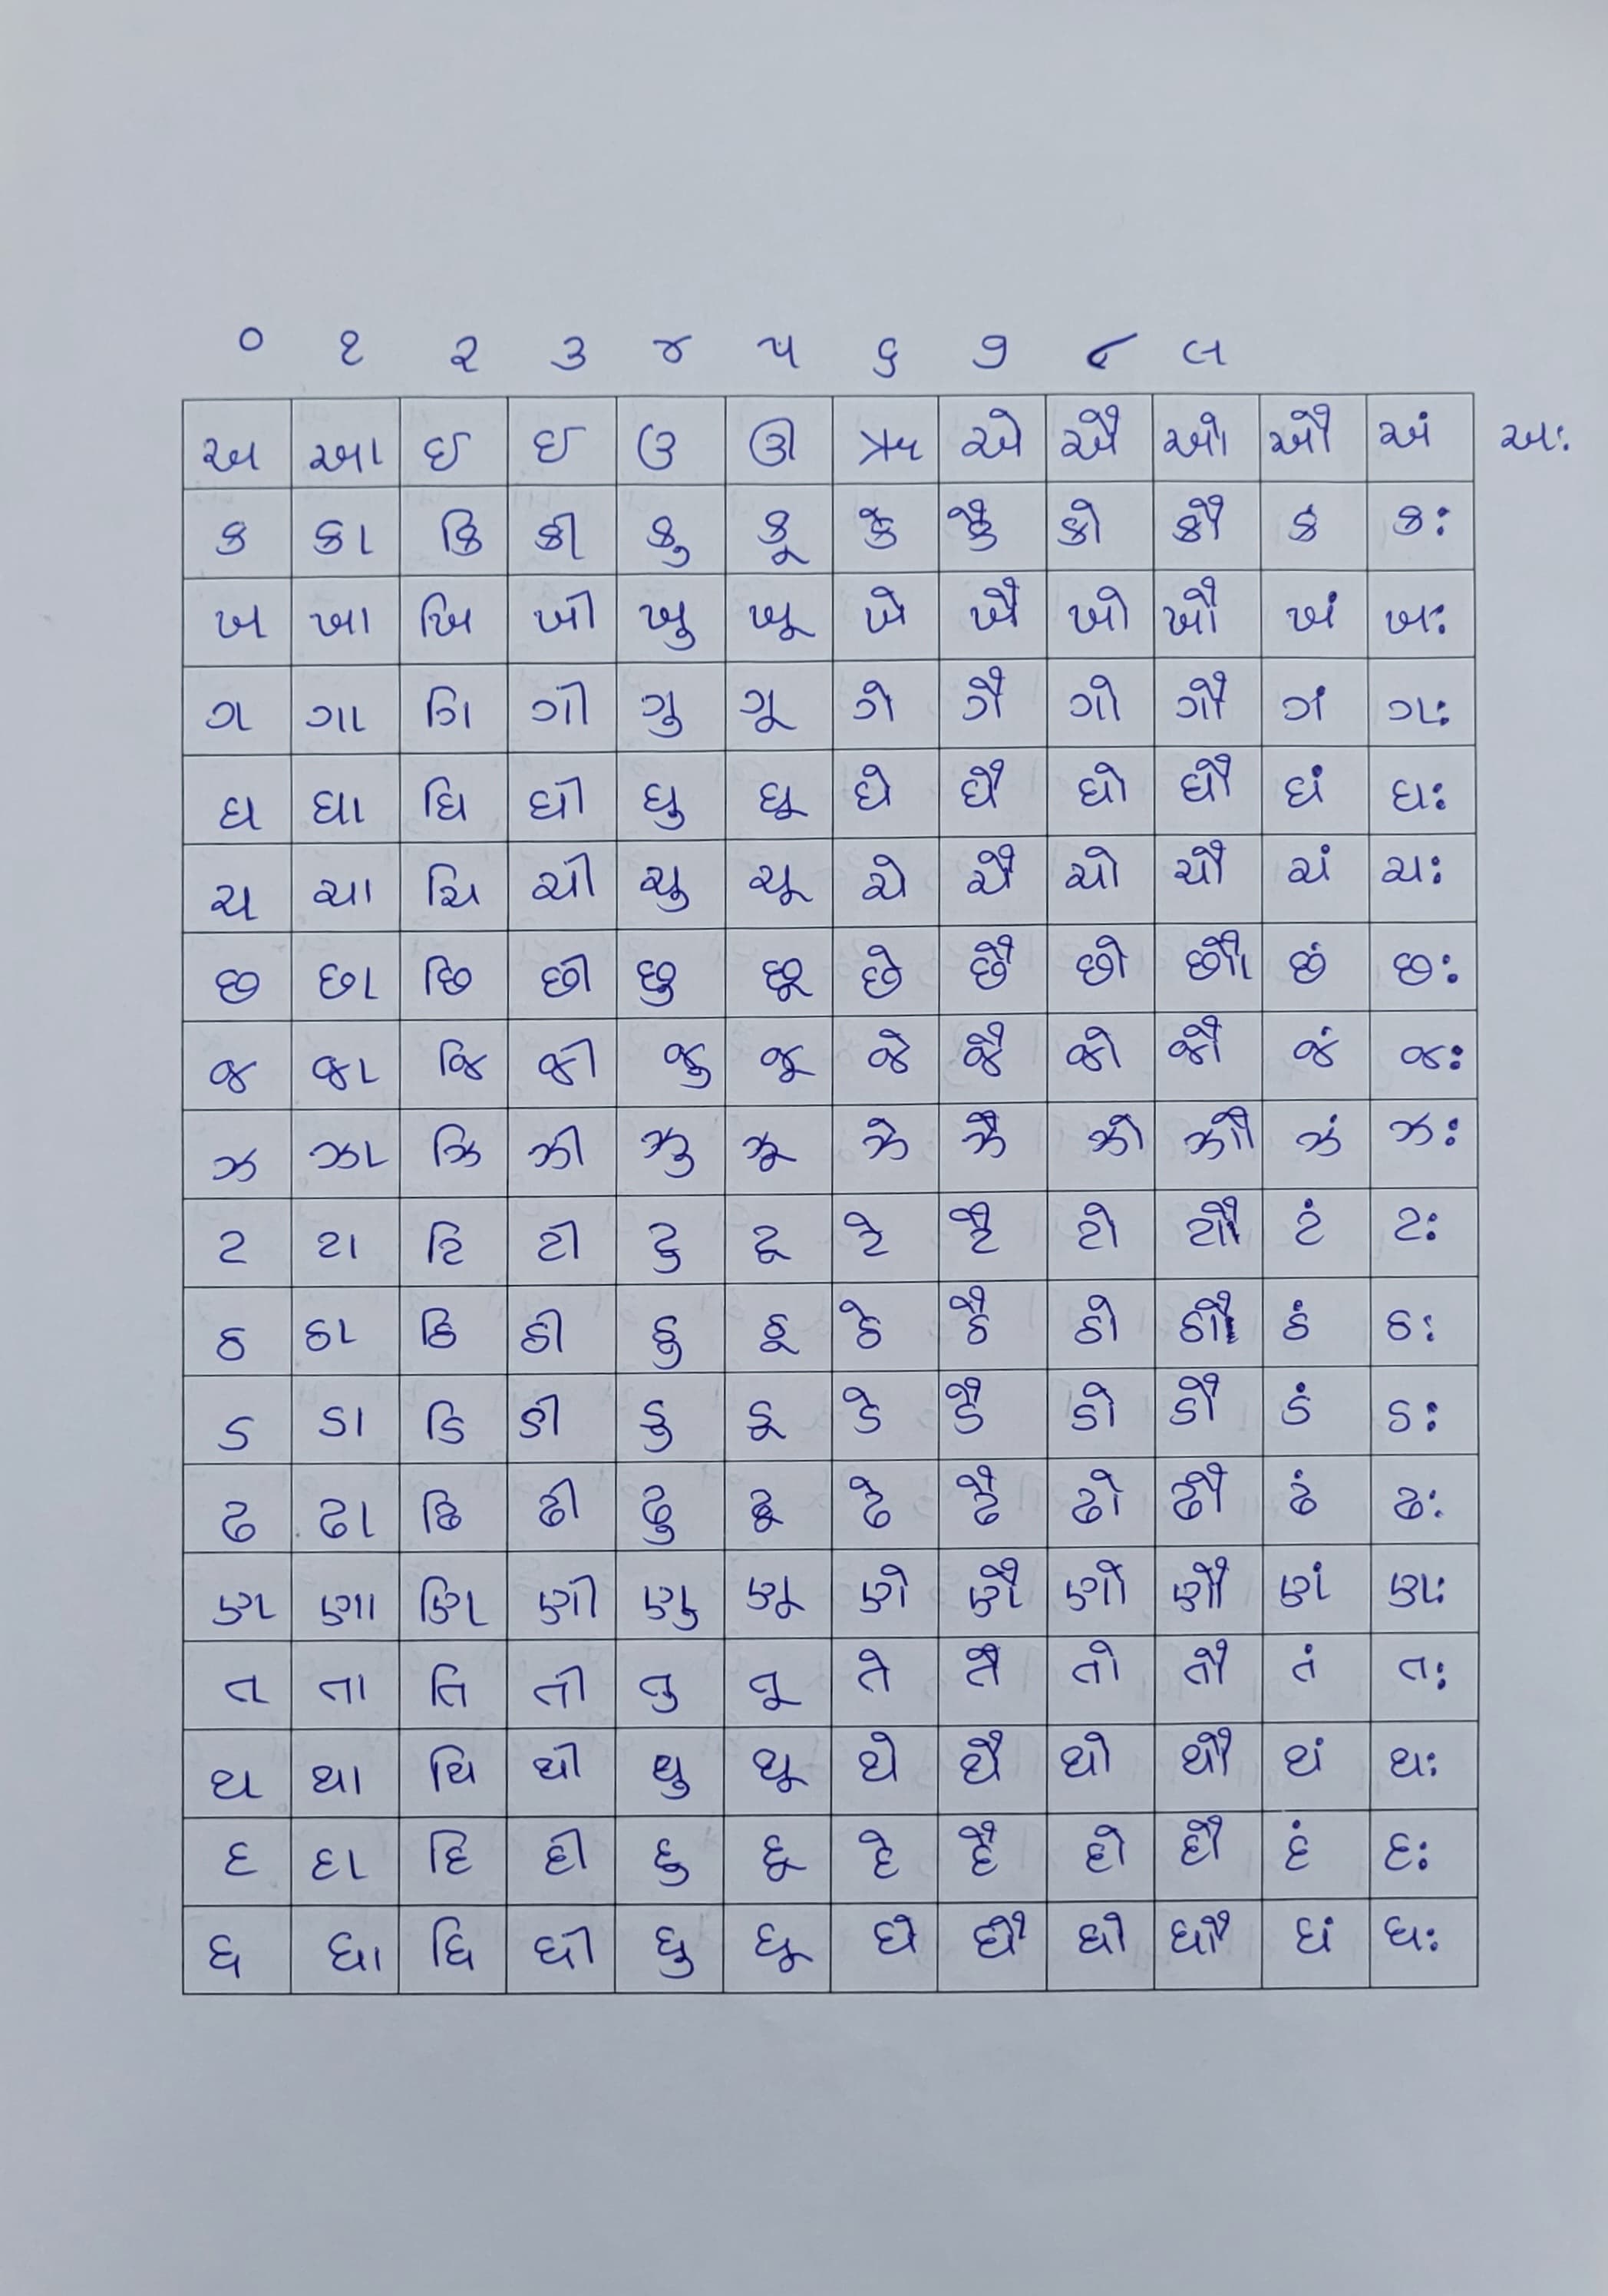 ૦ ૧ ૨ ૩ ૪ ૫ ૬ ૭ ૮ ૯
અ આ ઇ ઈ ઉ ઊ ઋ એ ઐ ઓ ઔ અં અઃ
ક કા કિ કી કુ કૂ કે કૈ કો કૌ કં કઃ
ખ ખા ખિ ખી ખુ ખૂ ખે ખૈ ખો ખૌ ખં ખઃ
ગ ગા ગિ ગી ગુ ગૂ ગે ગૈ ગો ગૌ ગં ગઃ
ઘ ઘા ઘિ ઘી ઘુ ઘૂ ઘે ઘૈ ઘો ઘૌ ઘં ઘઃ
ચ ચા ચિ ચી ચુ ચૂ ચે ચૈ ચો ચૌ ચં ચઃ
છ છા છિ છી છુ છૂ છે છૈ છો છૌ છં છઃ
જ જા જિ જી જુ જૂ જે જૈ જો જૌ જં જઃ
ઝ ઝા ઝિ ઝી ઝુ ઝૂ ઝે ઝૈ ઝો ઝૌ ઝં ઝઃ
ટ ટા ટિ ટી ટુ ટૂ ટે ટૈ ટો ટૌ ટં ટઃ
ઠ ઠા ઠિ ઠી ઠુ ઠૂ ઠે ઠૈ ઠો ઠૌ ઠં ઠઃ
ડ ડા ડિ ડી ડુ ડૂ ડે ડૈ ડો ડૌ ડં ડઃ
ઢ ઢા ઢિ ઢી ઢુ ઢૂ ઢે ઢૈ ઢો ઢૌ ઢં ઢઃ
ણ ણા ણિ ણી ણુ ણૂ ણે ણૈ ણો ણૌ ણં ણઃ
ત તા તિ તી તુ તૂ તે તૈ તો તૌ તં તઃ
થ થા થિ થી થુ થૂ થે થૈ થો થૌ થં થઃ
દ દા દિ દી દુ દૂ દે દૈ દો દૌ દં દઃ
ધ ધા ધિ ધી ધુ ધૂ ધે ધૈ ધો ધૌ ધં ધઃ